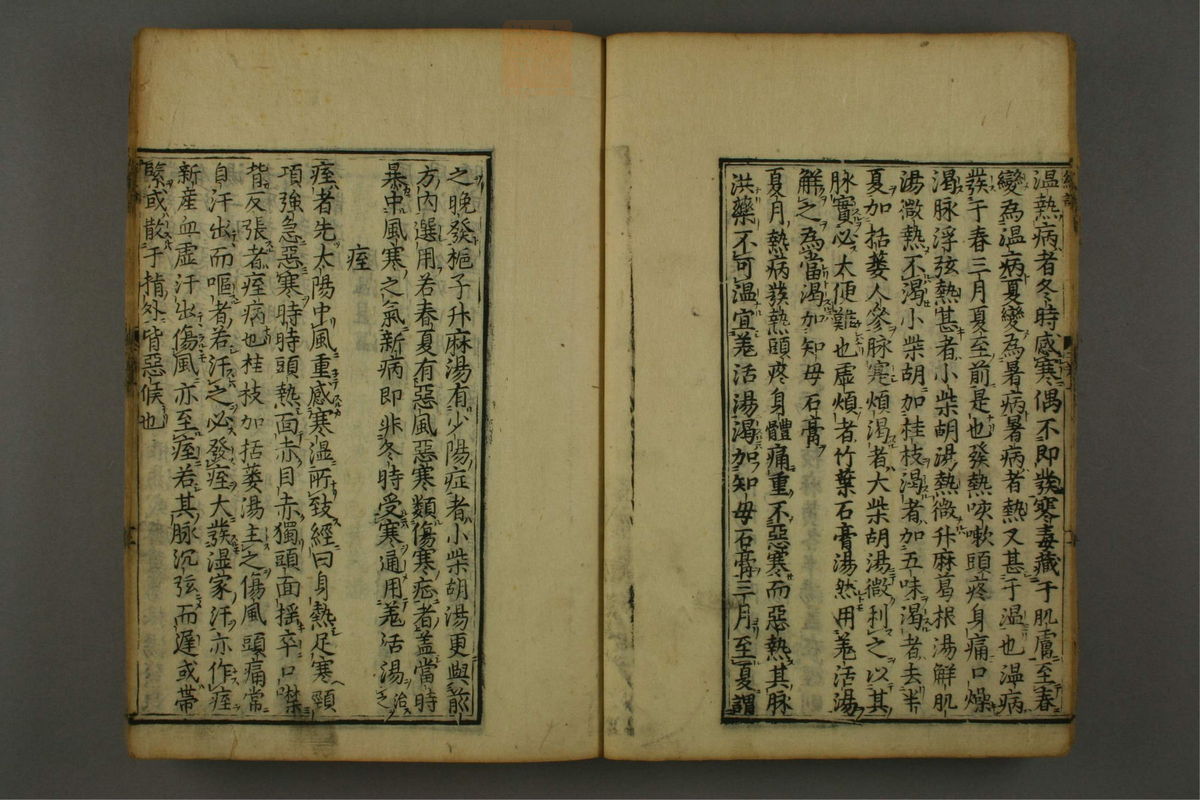 温熱病者冬時感寒偶不即發寒毒藏于肌膚至春
變為温病夏變為暑病暑病者熱又甚于温也温病
發于春三月夏至前是也發熱咳嗽頭疼身痛口燥
渴脉浮弦熱甚者小柴胡湯熱微升麻葛根湯解肌
湯微熱不渴小柴胡加桂枝渴者加五味渴者去半
夏加括蔞人參脉寔煩渴者大柴胡湯微利之以其
脉實必大便難也虚煩者竹葉石膏湯然用羗活湯
解之為當渴加知母石膏
夏月熱病發熱頭疼身體痛重不惡寒而惡熱其脉
洪藥不可温宜羗活湯渴加知母石膏三月至夏謂
之晚發梔子升麻湯有少陽症者小柴胡湯更與前
方内選用若春夏有惡風惡寒纇傷寒症者盖當時
暴中風寒之氣新病即非冬時受寒通用羗活湯治之
痓
痓者先太陽中風重感寒温所致經曰身熱足寒頸
項強急惡寒時時頭熱面赤目赤獨頭面揺卒口噤
背反張者痓病也桂枝加括蔞湯主之傷風頭痛常
自汗出而嘔者若汗之必發痓大發湿家汗亦作痓
新産血虚汗出傷風亦至痓若其脉沉弦而遲或帶
緊或散于指外皆惡候也